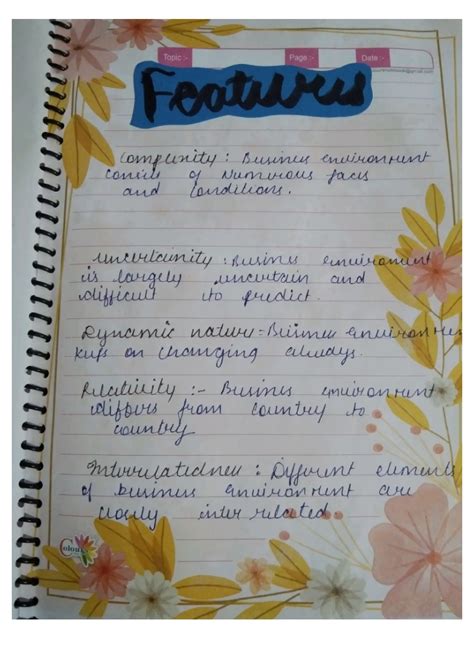 Topic :-
Page :-
Date :-
Features
Complexity : Business environment
consist of Numerous faces
and conditions.
uncertainity : Business environment
is largely uncertain and
difficult to predict.
Dynamic nature = Business environmen
keeps on changing always.
Relativity :- Business environment
differs from country to
country
Interrelatednes : Different elements
of business environment are
closely inter related
Colour